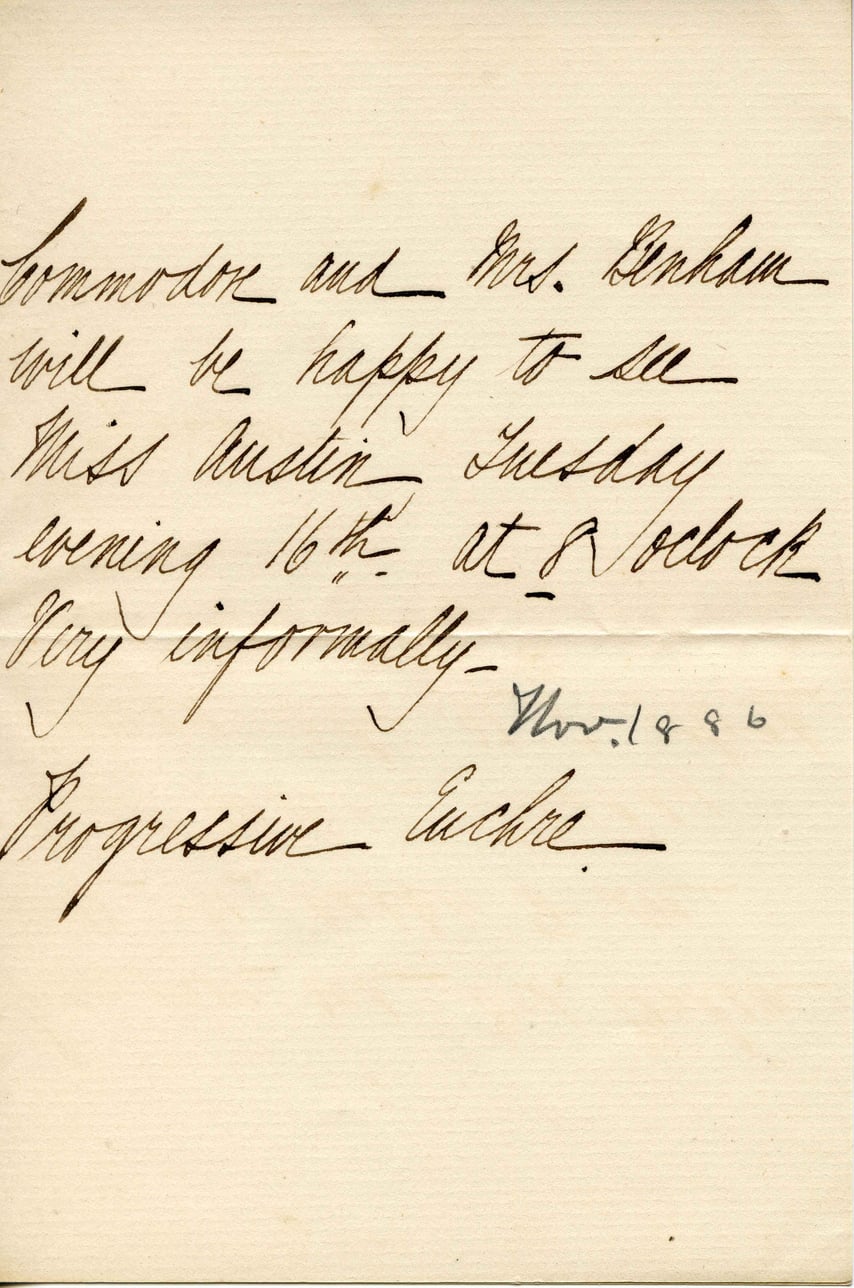 Commodore and Mrs. Benham
will be happy to see
Miss Austin Tuesday
evening 16th. at 8 oclock
Very informally-
Nov. 1886
Progressive Euchre.